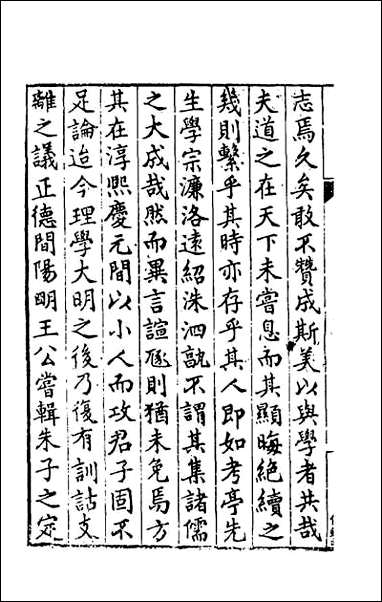 志焉久矣敢不贊成斯美以與學者共哉
夫道之在天下未嘗息而其顯晦絕續之
幾則繫乎其時亦存乎其人即如考亭先
生學宗濂洛遠紹洙泗孰不謂其集諸儒
之大成哉然而異言諠豗則猶未免焉方
其在淳熙慶元間以小人而攻君子固不
足論迨今理學大明之後乃復有訓詁支
離之議正德間陽明王公嘗輯朱子之定